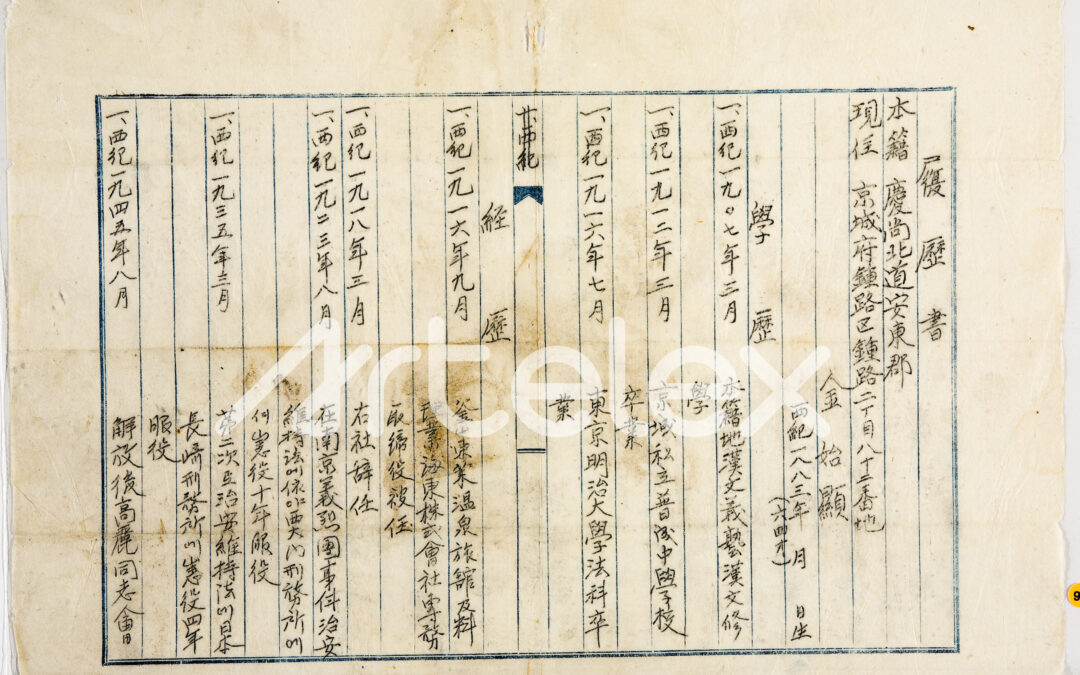 履歷書
本籍 慶尙北道安東郡
現住 京城府鍾路区鍾路二丁目八十二番地
金始顯
西紀一八八三年 月 日生
(六四才)
學歷
一、西紀一九〇七年三月 本籍地漢文義塾漢文修
學
一、西紀一九一二年三月 京城私立普成中學校
卒業
一、西紀一九一六年七月 東京明治大學法科卒
業
一、西紀
経歷
一、西紀一九一六年九月 釜山東萊温泉旅舘及料
理業海東株式會社専務
取締役被任
一、西紀一九一八年三月 右社辞任
一、西紀一九二三年八月 在南京義烈團事件治安
維持法에依하야西大門刑務所에
서懲役十年服役
一、西紀一九三五年三月 第二次亦治安維持法에日本
長崎刑務所에懲役四年
服役
一、西紀一九四五年八月 解放後高麗同志會
Artelox
9